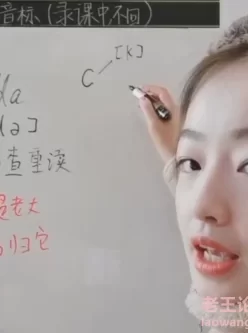 音标(录课中不回)
[k]
C
da
da]
查重读
是老大
归它
老王论
laowang